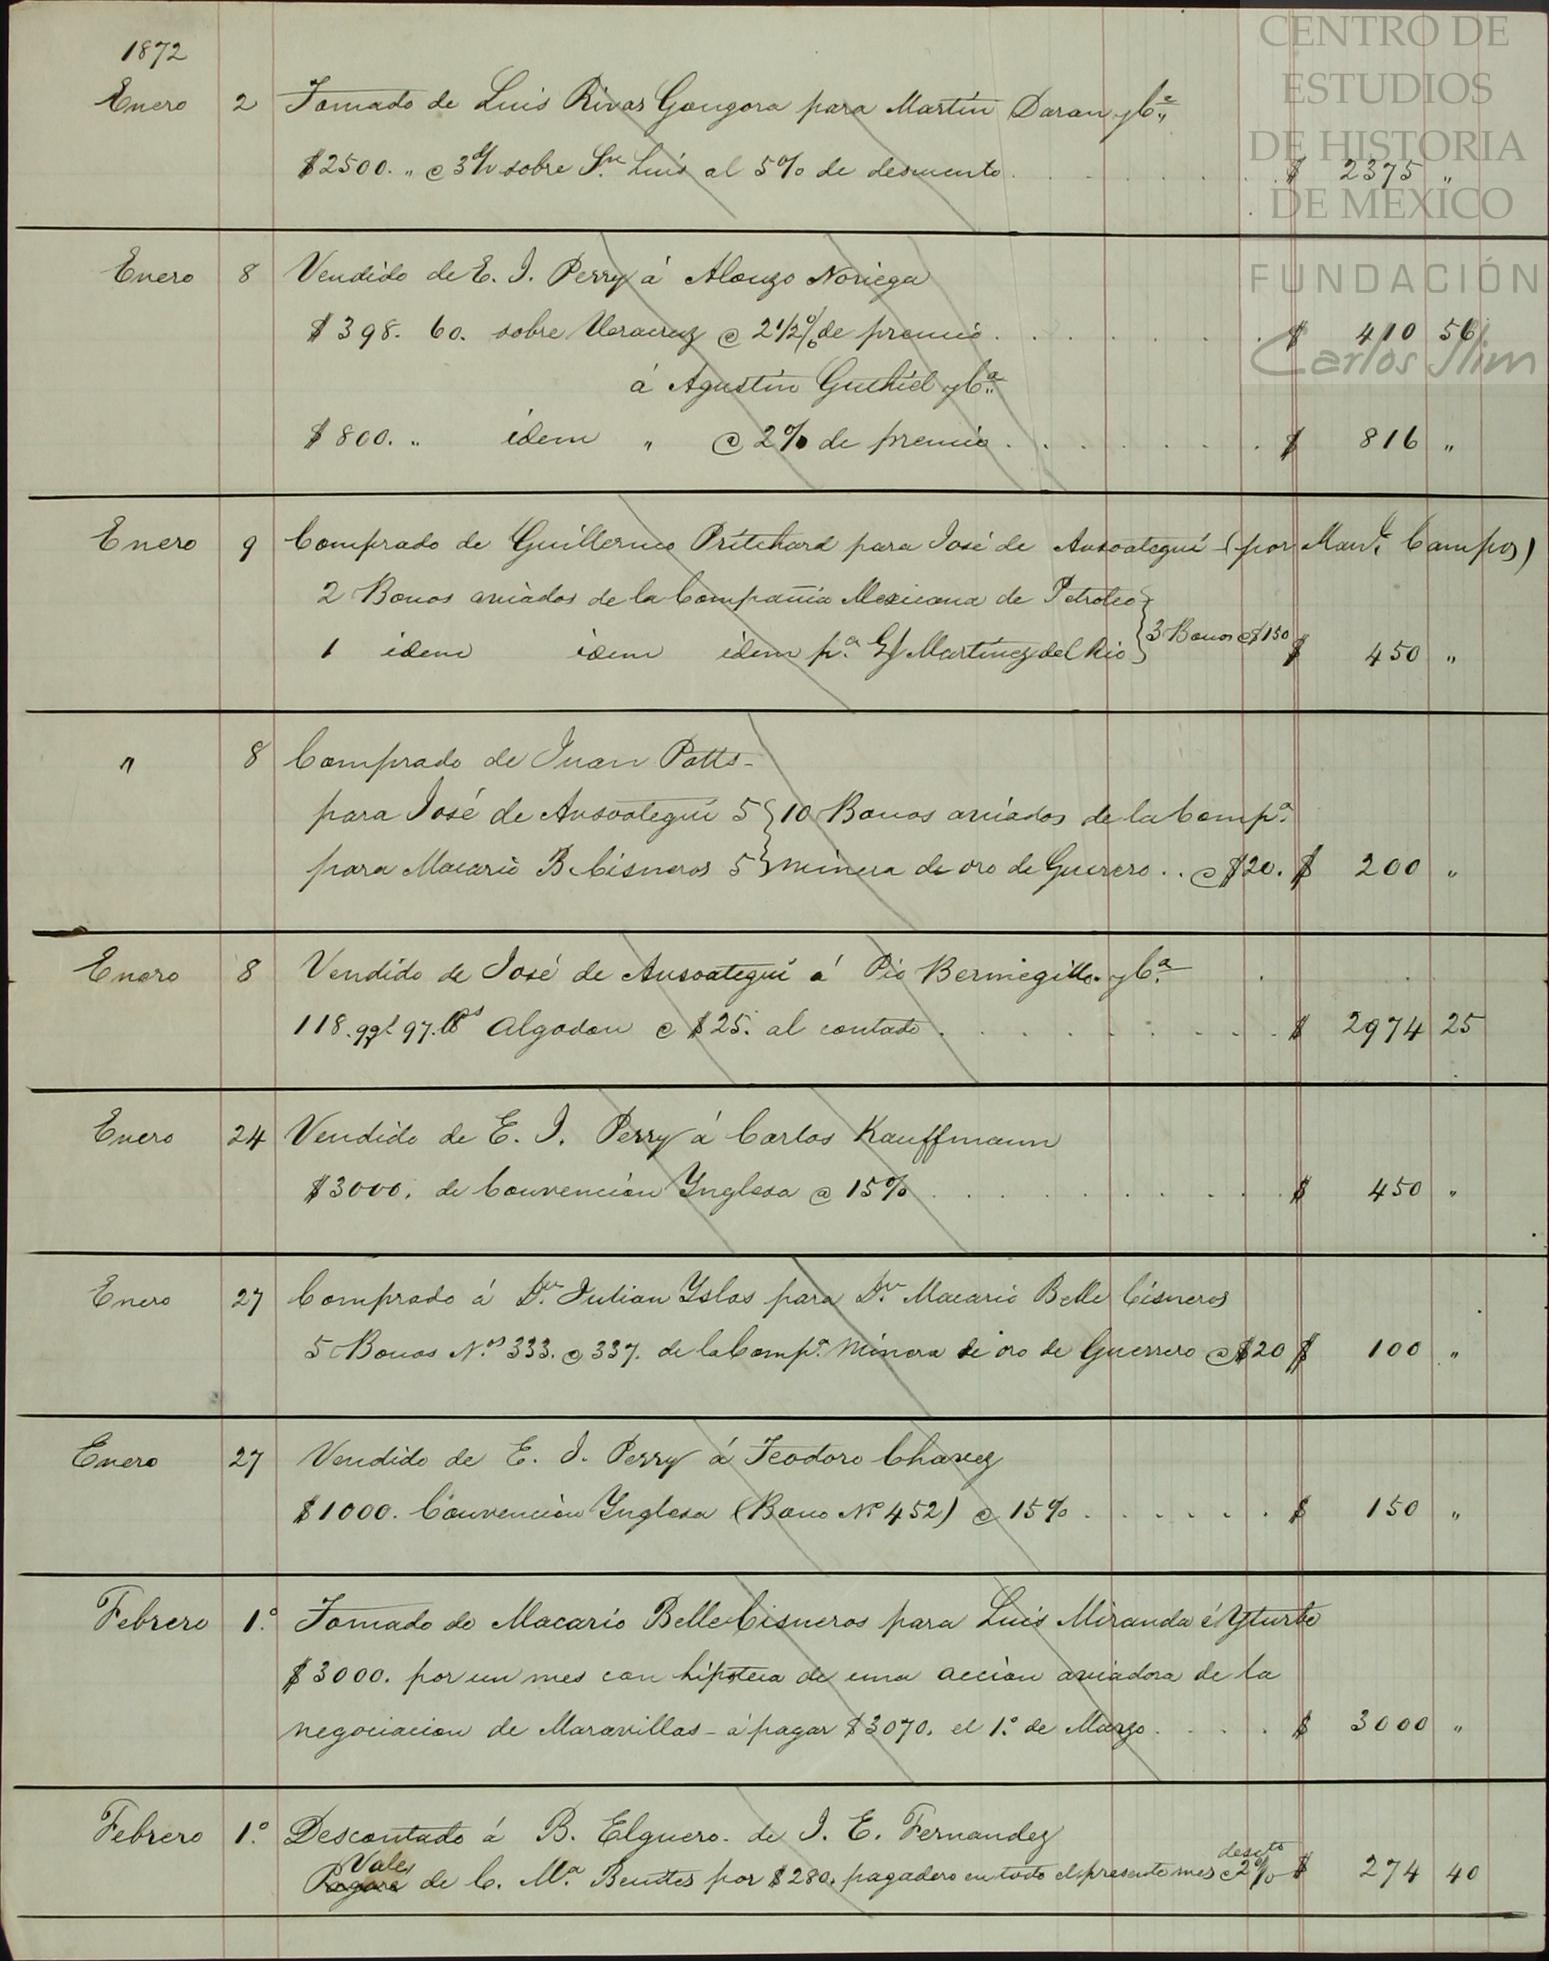 CENTRO DE
ESTUDIOS
DE HISTORIA
DE MÉXICO
FUNDACIÓN
Carlos Slim
1872
Enero 2 Tomado de Luis Rivas Gongora para Martin Daran y Cª
$2500. „ @ 3 d/v sobre Sn. Luis al 5% de descuento . . . . . . . $ 2375 „
Enero 8 Vendido de E. J. Perry á Alonzo Noriega
$398. 60. sobre Veracruz @ 2 1/2 % de premio . . . . . . . $ 410 56
á Agustin Guthiel y Cª
$800. „ idem „ @ 2% de premio . . . . . . . $ 816 „
Enero 9 Comprado de Guillermo Pritchard para José de Ansoategui - (por Man. Campos)
2 Bonos aviados de la Compañia Mexicana de Petroleo
1 idem idem idem pª. G/ Martinez del Rio } 3 Bonos @ $150 $ 450 „
„ 8 Comprado de Juan Potts -
para José de Ansoategui 5 } 10 Bonos aviados de la Compª.
para Macario B. Cisneros 5 } minera de oro de Guerero . . @ $20. $ 200 „
Enero 8 Vendido de José de Ansoategui á Pio Bermegillo y Cª.
118. qql 97. lbs Algodon @ $25. al contado . . . . . . . $ 2974 25
Enero 24 Vendido de E. J. Perry á Carlos Kauffmann
$3000. de Convencion Ynglesa @ 15% . . . . . . . $ 450 „
Enero 27 Comprado á Dn. Julian Yslas para Dn. Macario Belle Cisneros
5 Bonos N.os 333. @ 337. de la Compª. Minera de oro de Guerrero @ $20 $ 100 „
Enero 27 Vendido de E. J. Perry á Teodoro Chavez
$1000. Convencion Ynglesa (Bono Nº 452) @ 15% . . . . . . $ 150 „
Febrero 1º. Tomado de Macario Belle Cisneros para Luis Miranda é Yturbe
$3000. por un mes con hipoteca de una accion aviadora de la
negociacion de Maravillas - á pagar $3070. el 1º. de Marzo . . . . $ 3000 „
Febrero 1º. Descontado á B. Elguero - de J. E. Fernandez
Vale descto
Pagaré de C. Mª. Benites por $280. pagadero en todo el presente mes @ 2% $ 274 40